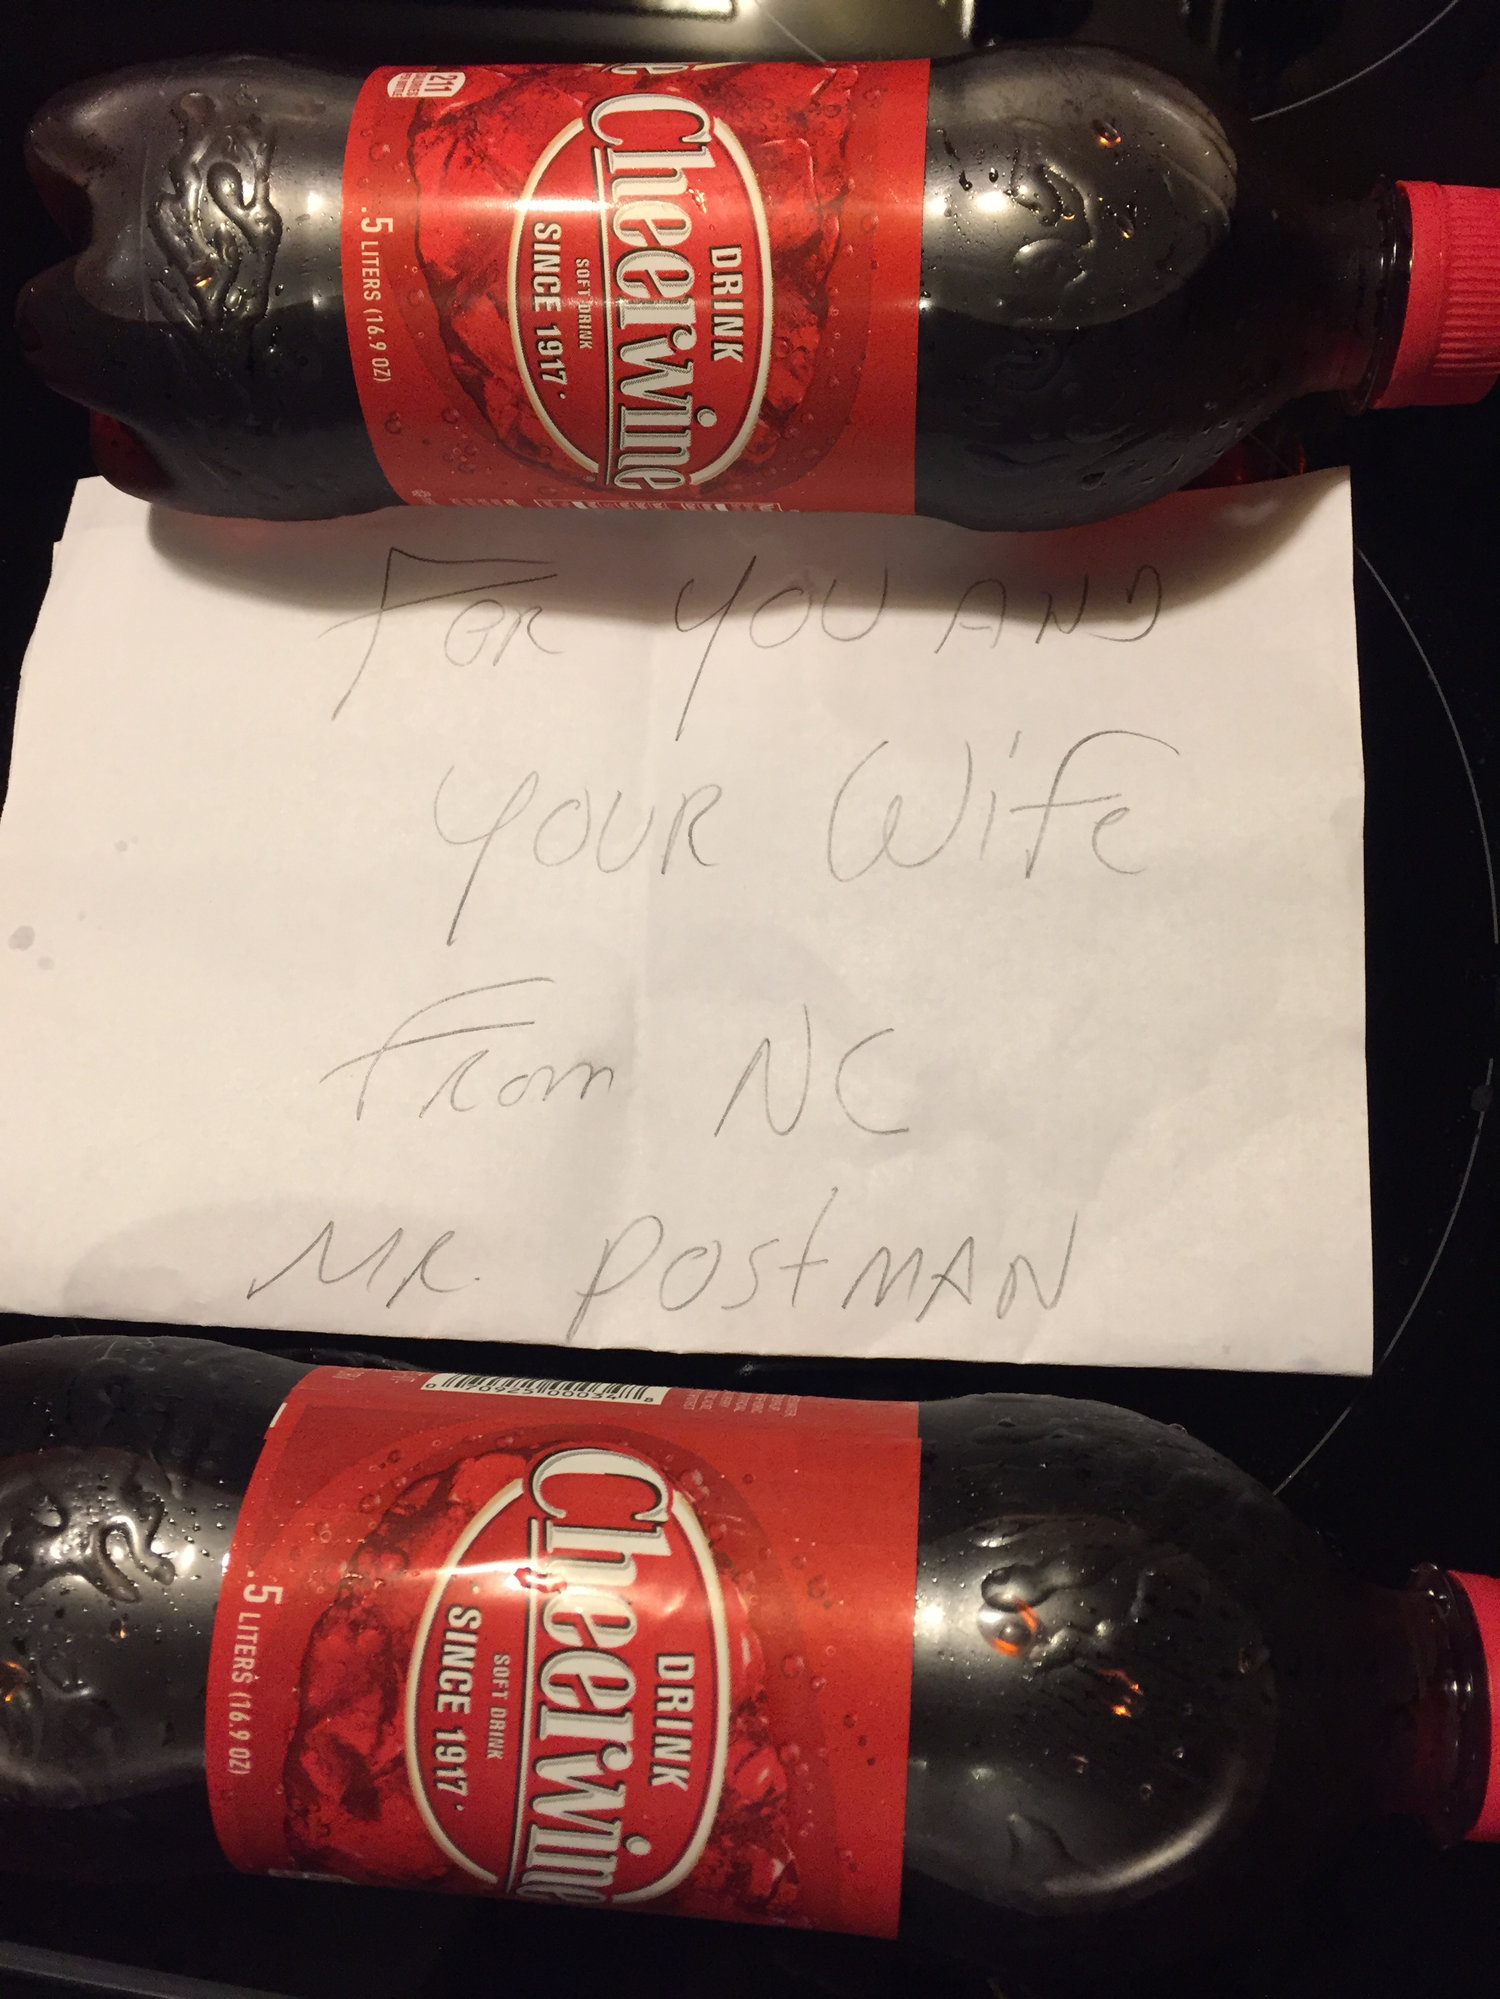 211
Cheerwine
DRINK
SOFT DRINK
SINCE 1917
.5 LITERS (16.9 OZ)
FOR YOU AND
YOUR Wife
From NC
MR. POSTMAN
0 70923 00034 8
DRINK
Cheerwine
SOFT DRINK
SINCE 1917
.5 LITERS (16.9 OZ)